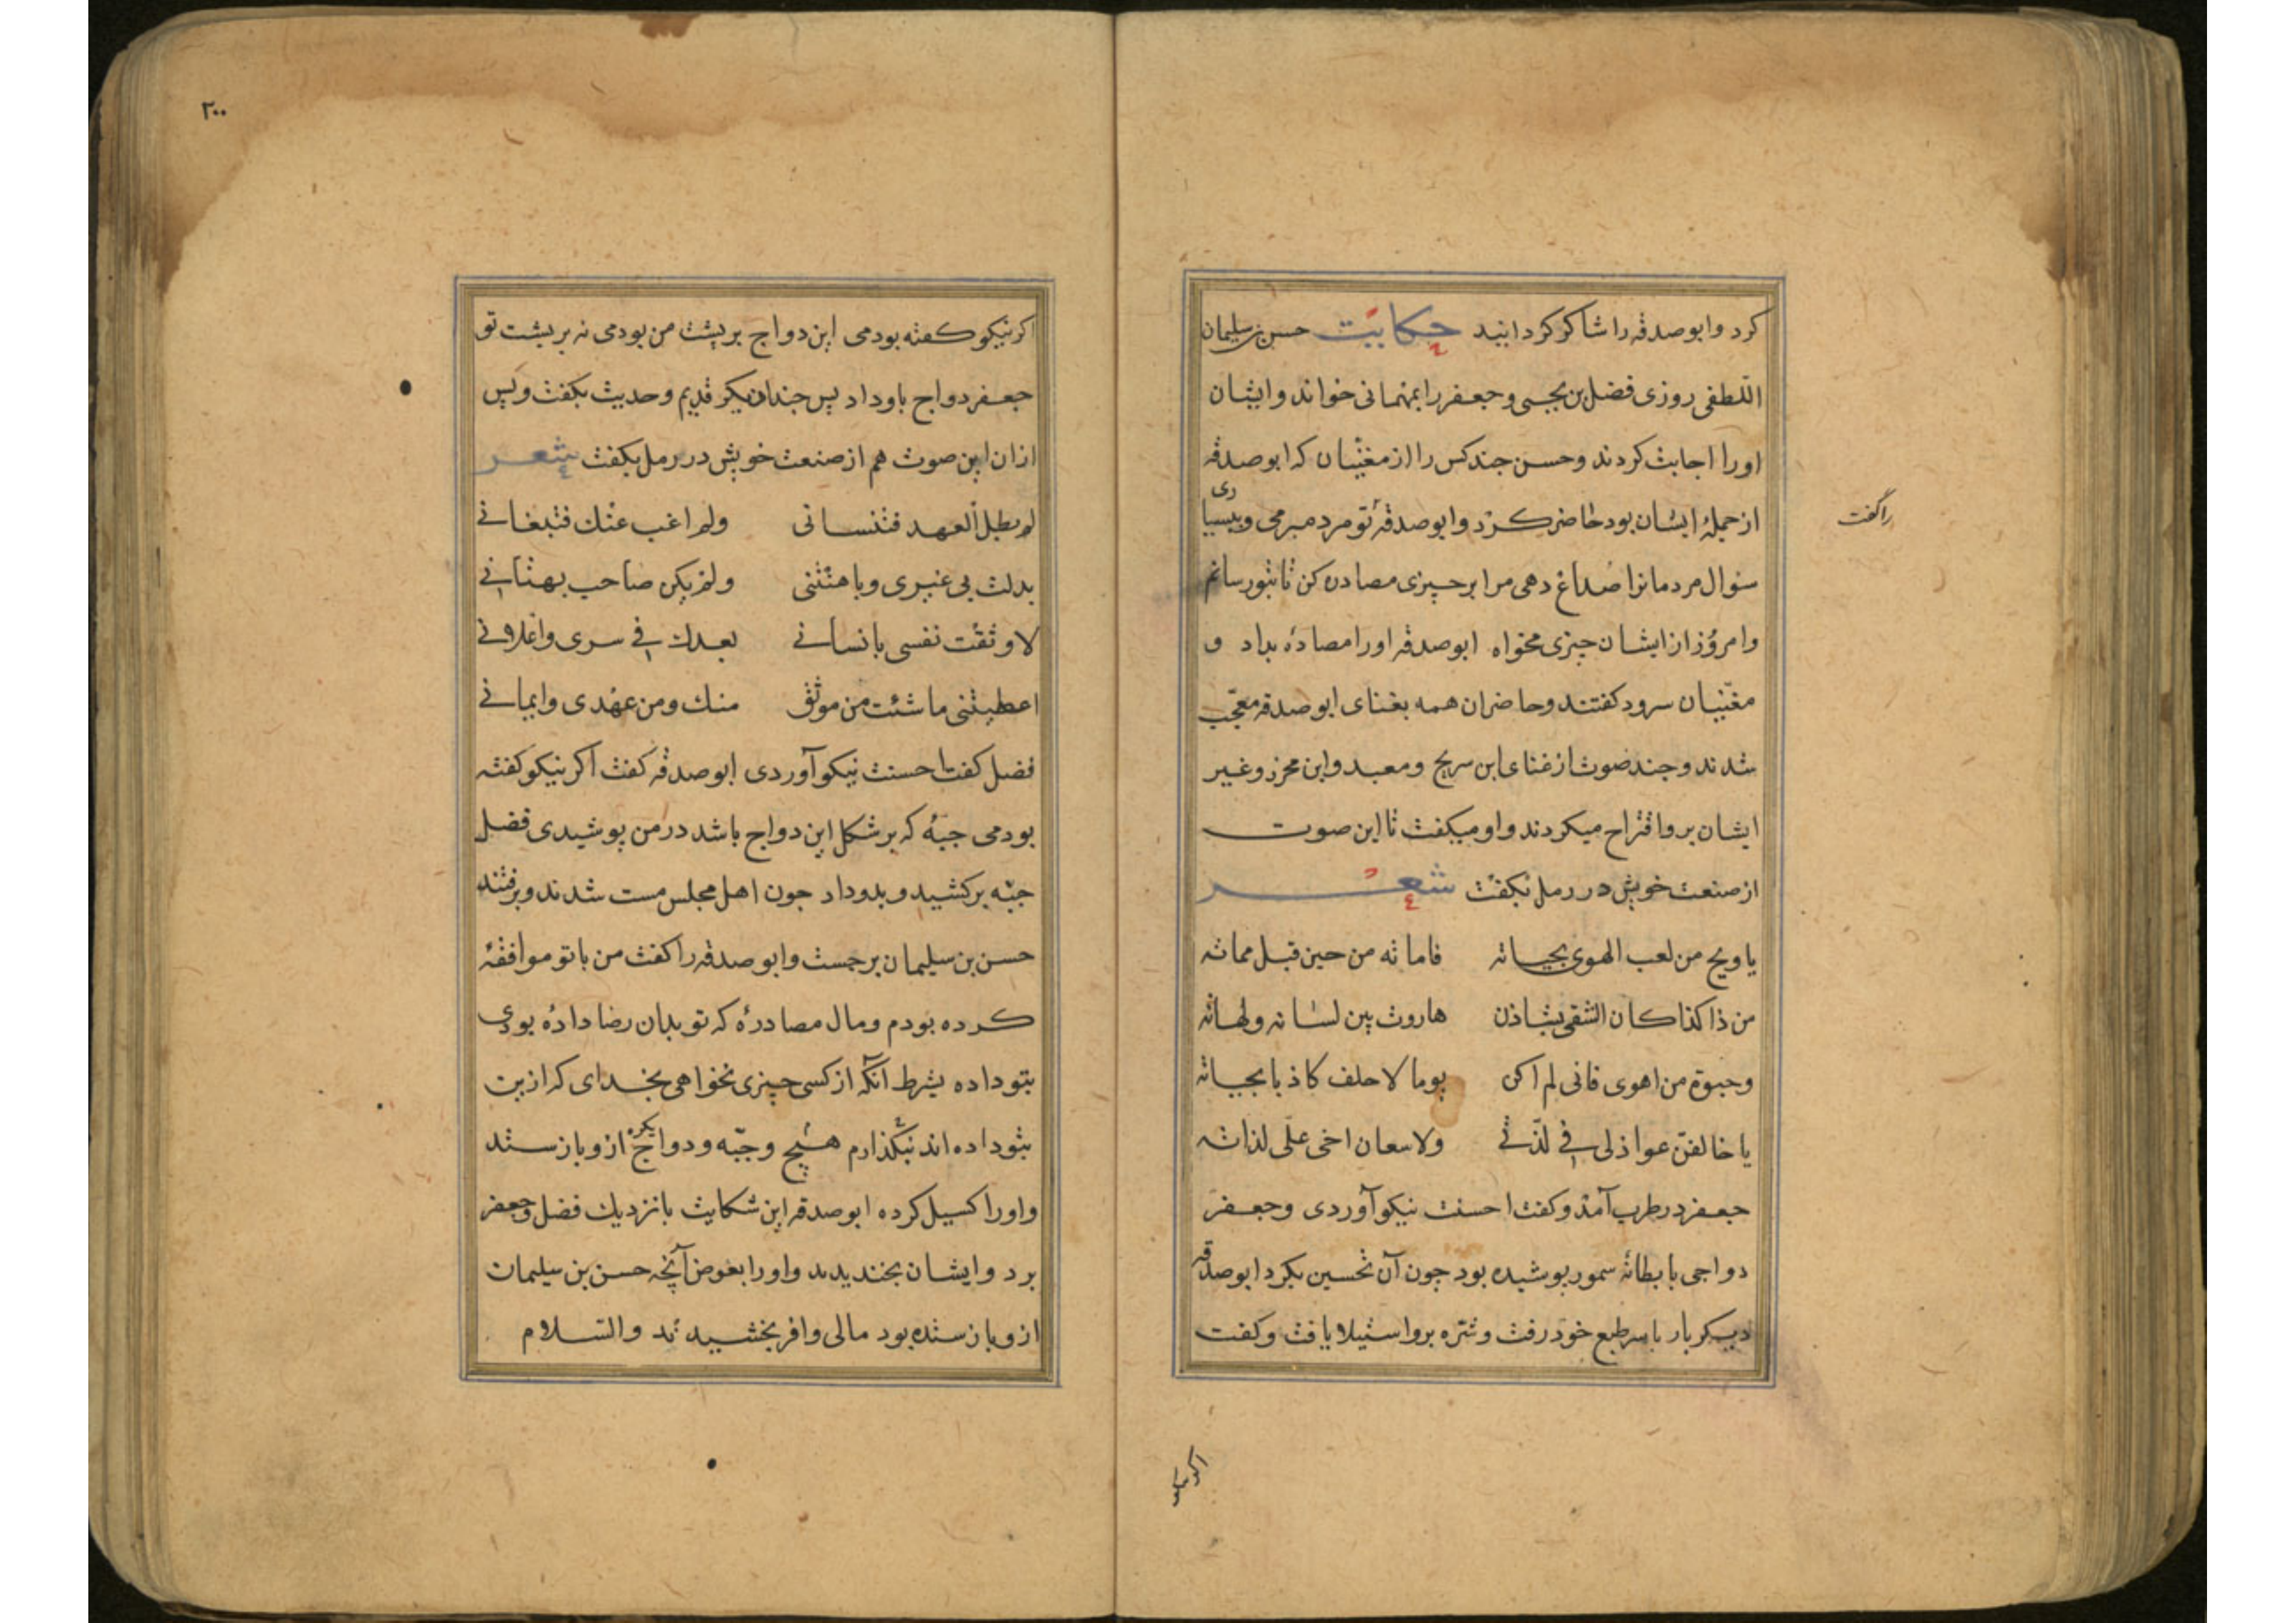 كرد وابوصدقه را شاكر كردانيد حكايت حسن بن سليمان
اللطفى روزى فضل بن يحيى وجعفر را بمهمانى خواند وايشان
او را اجابت كردند وحسن جند كس را از مغنيان كه ابوصدقه
از جملهٔ ايشان بود حاضر كرد وابوصدقه تو مرد مبرمى وببسيارى
را گفت
سؤال مردمانرا صداع دهى مرا بر جيزى مصادره كن تا بتو رسانم
وامروز از ايشان جيزى مخواه ابوصدقه او را مصاده بداد و
مغنيان سرود كفتند وحاضران همه بغناى ابوصدقه معجب
شدند وجند صوت از غناى ابن سريج ومعبد وابن محرز وغير
ايشان برو اقتراح ميكردند واو ميكفت تا اين صوت
از صنعت خويش در رمل بكفت شعر
يا ويح من لعب الهوى بحياته فاماته من حين قبل مماته
من ذا كذا كان الشقى بشاذن هاروت بين لسانه ولهاته
وحيوة من اهوى فانى لم اكن يوما لاحلف كاذبا بحياته
يا خالفن عواذلى فى لذتى ولاسعان اخى على لذاته
جعفر در طرب آمد وكفت احسنت نيكو آوردى وجعفر
دواجى با بطانهٔ سمور پوشيده بود جون آن تحسين بكرد ابوصدقه
ديكر بار با سر طبع خود رفت وشره برو استيلا يافت وكفت
اكر نيكو
٢٠٠
اكر نيكو كفته بودمى اين دواج بر پشت من بودمى نه بر پشت تو
جعفر دواج باو داد پس جندان ديكر قديم وحديث بكفت وپس
ازان اين صوت هم از صنعت خويش در رمل بكفت شعر
لم يطل العهد فتنسانى ولم اغب عنك فتبغانى
بدلت بى غيرى وباهتنى ولم يكن صاحب بهتانى
لا وثقت نفسى بانسانى بعدك فى سرى واعلانى
اعطيتنى ما شئت من موثق منك ومن عهدى وايمانى
فضل كفت احسنت نيكو آوردى ابوصدقه كفت اكر نيكو كفته
بودمى جبهٔ كه بر شكل اين دواج باشد در من پوشيدى فضل
جبه بركشيد وبدو داد جون اهل مجلس مست شدند وبرفتند
حسن بن سليمان برجست وابوصدقه را كفت من با تو موافقهٔ
كرده بودم ومال مصادرهٔ كه تو بدان رضا داده بودى
بتو داده بشرط آنكه از كسى جيزى نخواهى بخداى كه ازين
بتو داده اند نبكذارم هيج وجبه ودواج بكره ازو باز ستد
واو را كسيل كرده ابوصدقه اين شكايت با نزديك فضل وجعفر
برد وايشان بخنديدند واو را بعوض آنچه حسن بن سليمان
ازو باز ستده بود مالى وافر بخشيدند والسلام